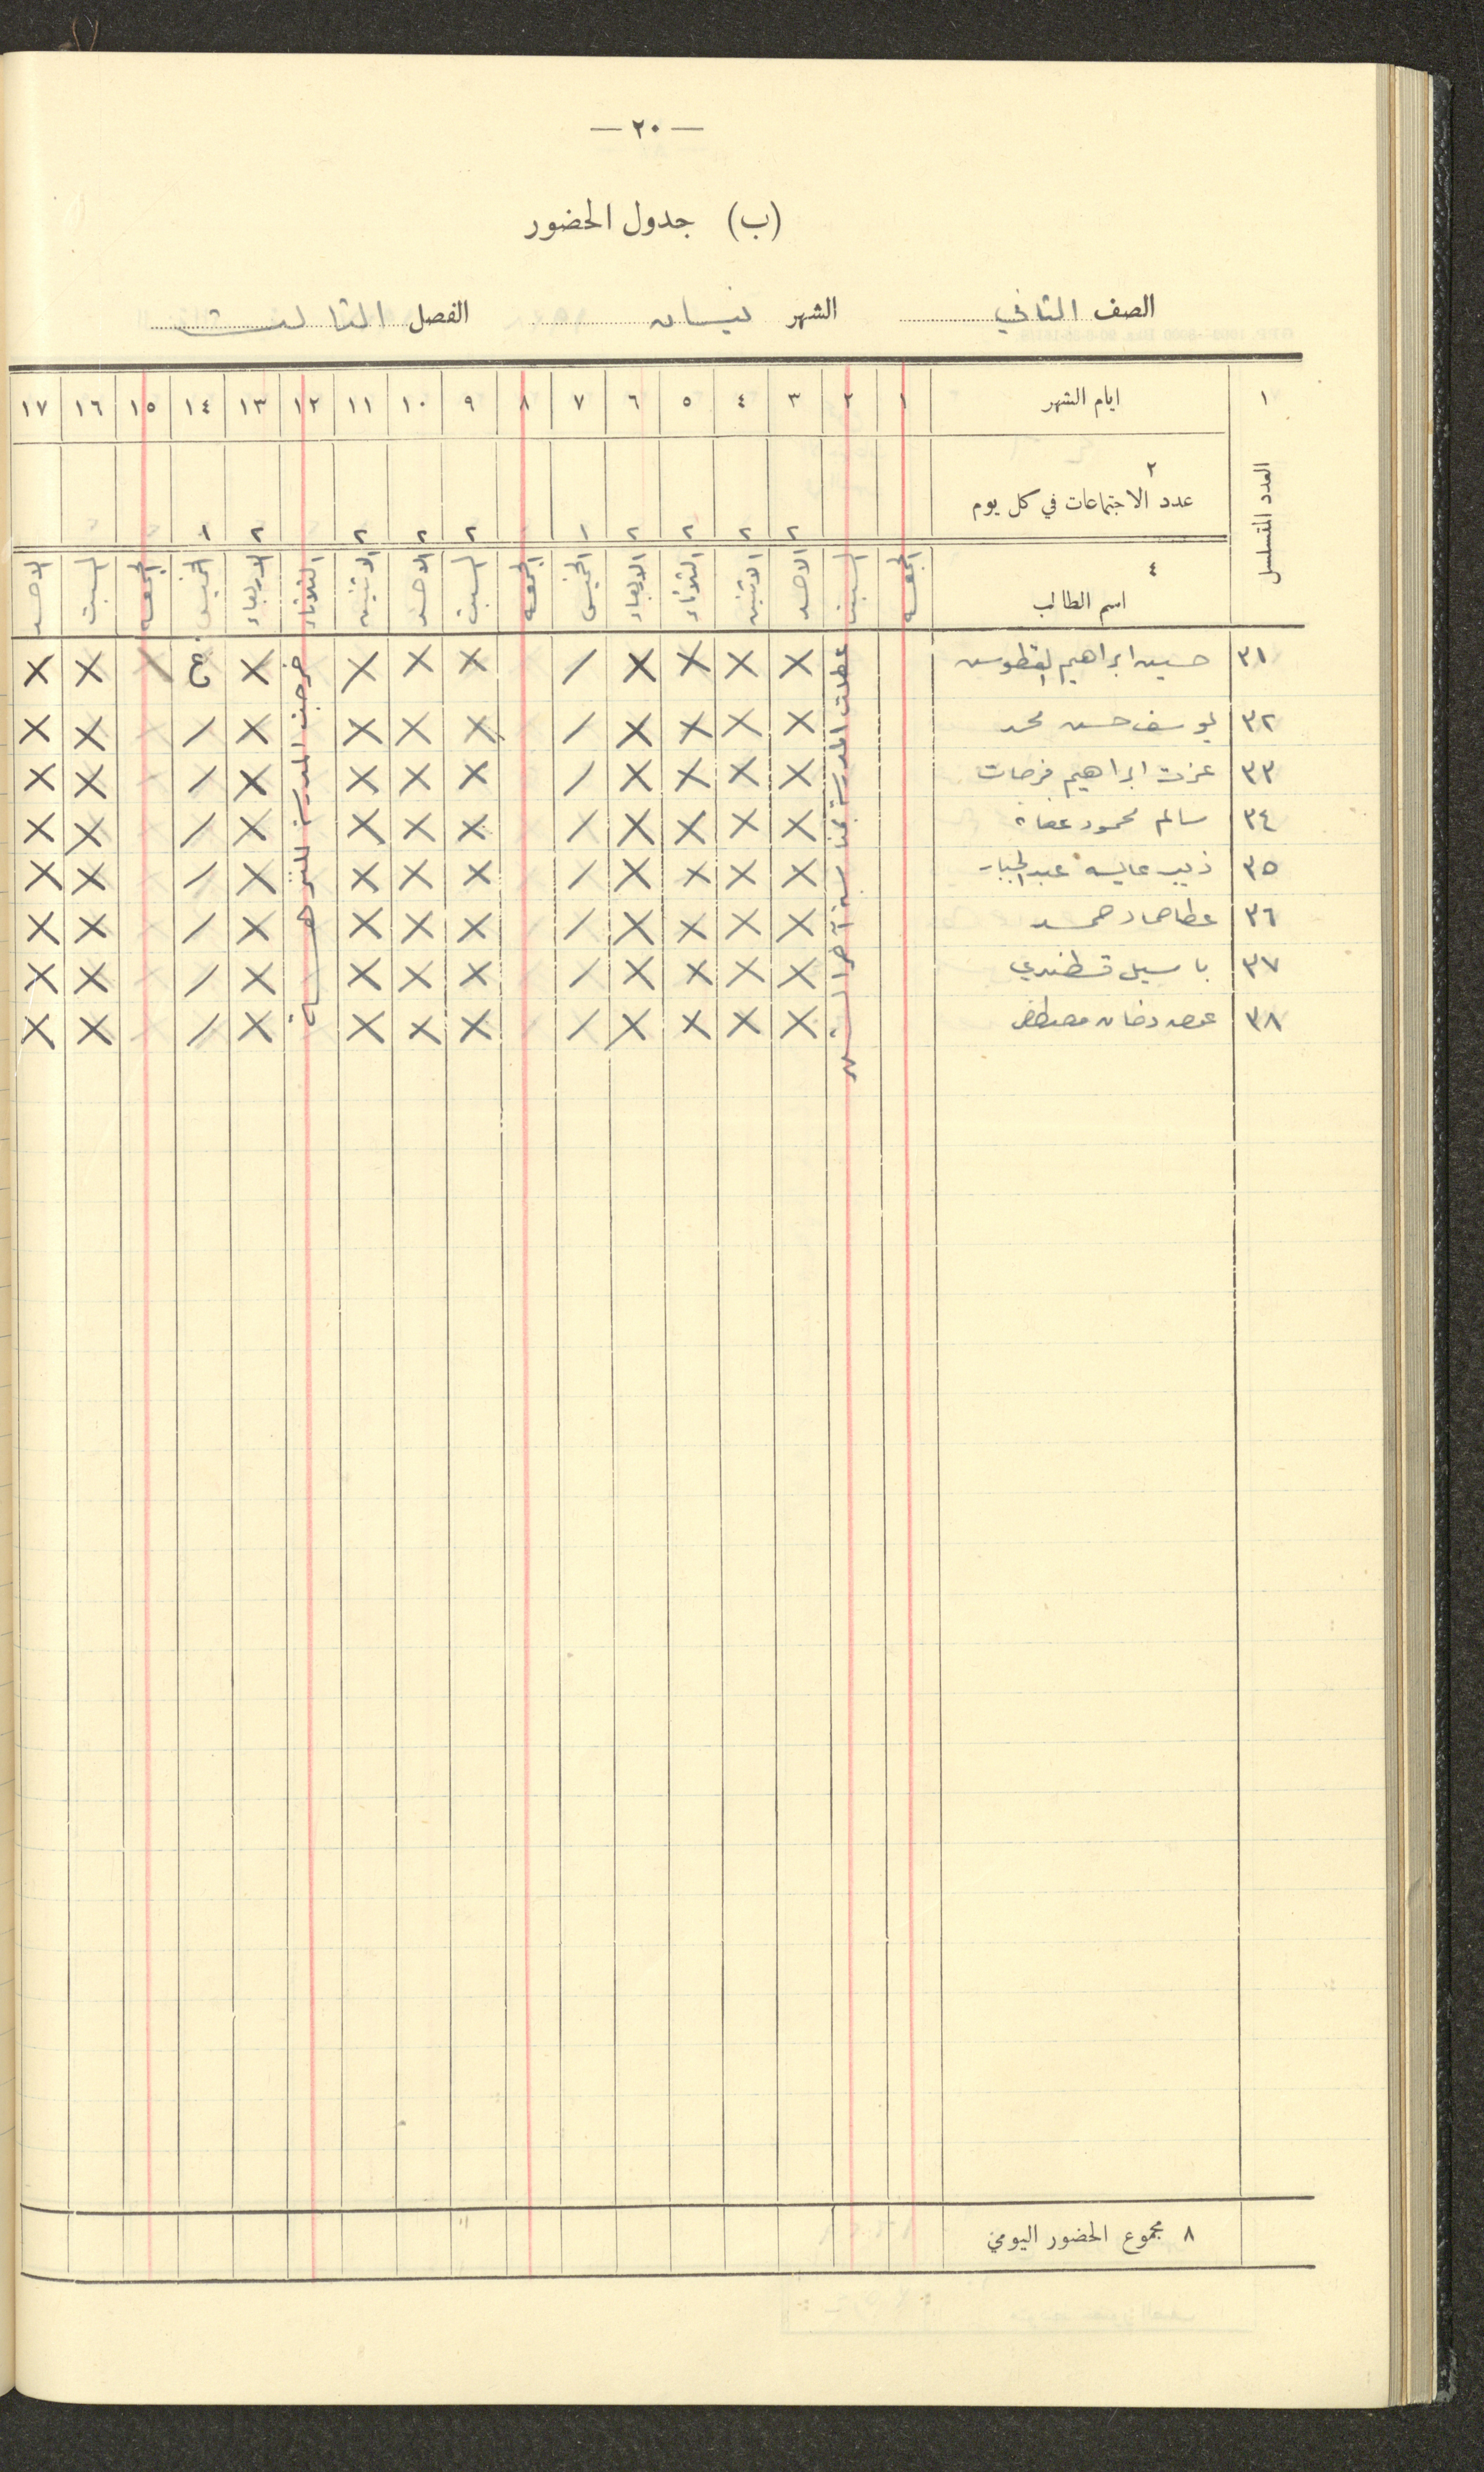 — ٢٠ —
(ب) جدول الحضور
الصف الثاني الشهر نيسان الفصل الثالث
١ ايام الشهر ١ ٢ ٣ ٤ ٥ ٦ ٧ ٨ ٩ ١٠ ١١ ١٢ ١٣ ١٤ ١٥ ١٦ ١٧
العدد المتسلسل
٢
عدد الاجتماعات في كل يوم ٢ ٢ ٢ ٢ ١ ٢ ٢ ٢ ٢ ١
٤
اسم الطالب الجمعه السبت الاحد الاثنين الثلاثاء الاربعاء الخميس الجمعه السبت الاحد الاثنين الثلاثاء الاربعاء الخميس الجمعه السبت الاحد
عطلت المدرسة بمناسبة آخر الشهر
خرجت المدرسة للنزهــة
٣١ حسين ابراهيم X X X X / X X X X X X
٣٢ يوسف حسن محمد X X X X / X X X X / X X
٣٣ عزت ابراهيم فرحات X X X X / X X X X / X X
٣٤ سالم محمود X X X X / X X X X / X X
٣٥ ذيب عايش عبد الجبار X X X X / X X X X / X X
٣٦ عطا حماد حمد X X X X / X X X X / X X
٣٧ باسيل قسطندي X X X X / X X X X / X X
٣٨ مصطفى X X X X / X X X X / X X
٨ مجموع الحضور اليومي